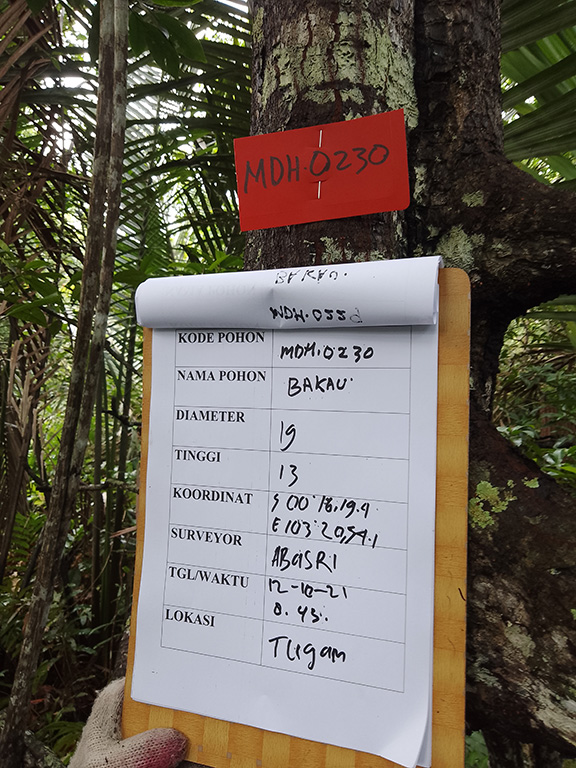 MDH.0230
BAKAU.
MDH.055
KODE POHON MDH.0230
NAMA POHON BAKAU
DIAMETER 19
TINGGI 13
KOORDINAT S 00°16.19.4
E 103°20,54.1
SURVEYOR ABASRI
TGL/WAKTU 12-10-21
0.45.
LOKASI TUGAM